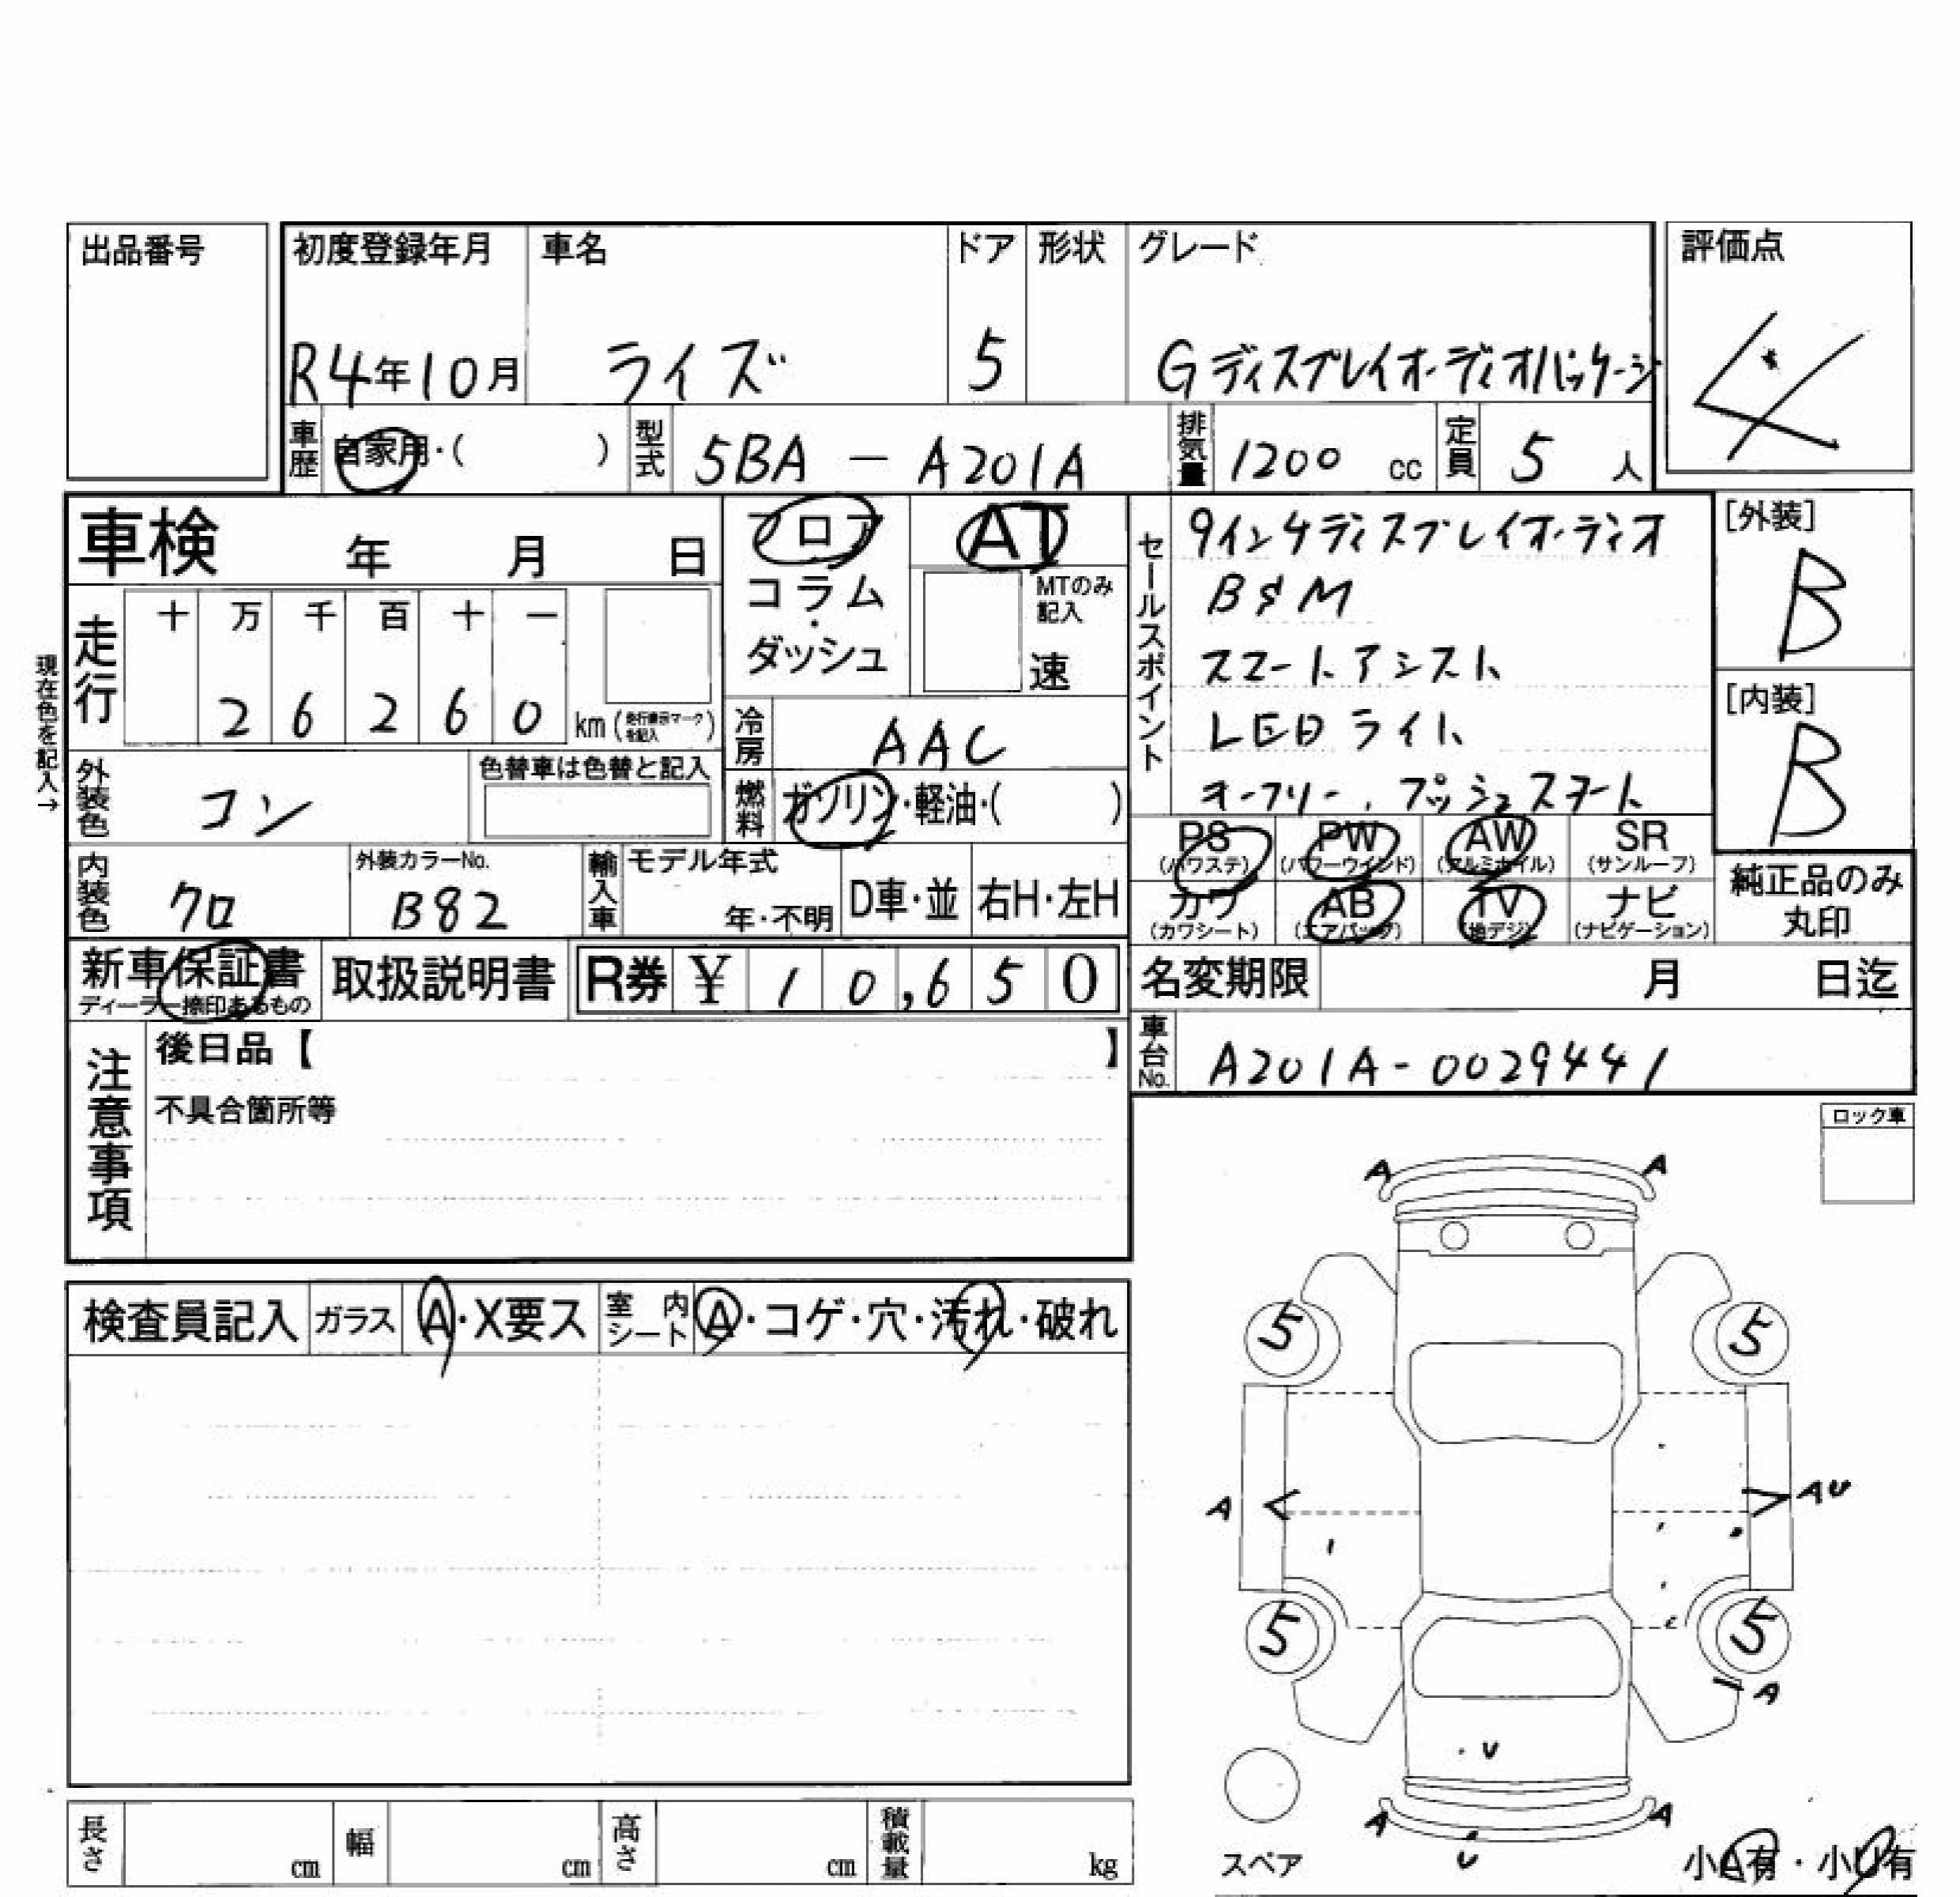 出品番号
初度登録年月 車名 ドア 形状 グレード 評価点
R4年10月 ライズ 5 Gディスプレイオーディオパッケージ 4
車歴 自家用・( ) 型式 5BA - A201A 排気量 1200 cc 定員 5 人
車検 年 月 日
フロア
コラム・
ダッシュ
AT
MTのみ
記入
速
セールスポイント
9インチディスプレイオーディオ
B&M
スマートアシスト
LEDライト
キーフリー, プッシュスタート
[外装]
B
[内装]
B
現在色を記入→
走行 十 万 千 百 十 一
2 6 2 6 0 km (走行表示マークを記入)
冷房 AAC
外装色 コン 色替車は色替と記入
燃料 ガソリン・軽油・( )
PS PW AW SR
(パワステ) (パワーウインド) (アルミホイル) (サンルーフ)
カワ AB TV ナビ
(カワシート) (エアバッグ) (地デジ) (ナビゲーション)
純正品のみ
丸印
内装色 クロ 外装カラーNo. B82 輸入車 モデル年式 年・不明 D車・並 右H・左H
新車保証書 取扱説明書 R券 ¥ 10,650 名変期限 月 日迄
ディーラー捺印あるもの
車台No. A201A-0029441
注意事項
後日品【 】
不具合箇所等
ロック車
A A
検査員記入 ガラス A・X要ス 室内シート A・コゲ・穴・汚れ・破れ
5 5
A AU
5 5
A
U
A A
U
スペア 小A有・小U有
長さ cm 幅 cm 高さ cm 積載量 kg